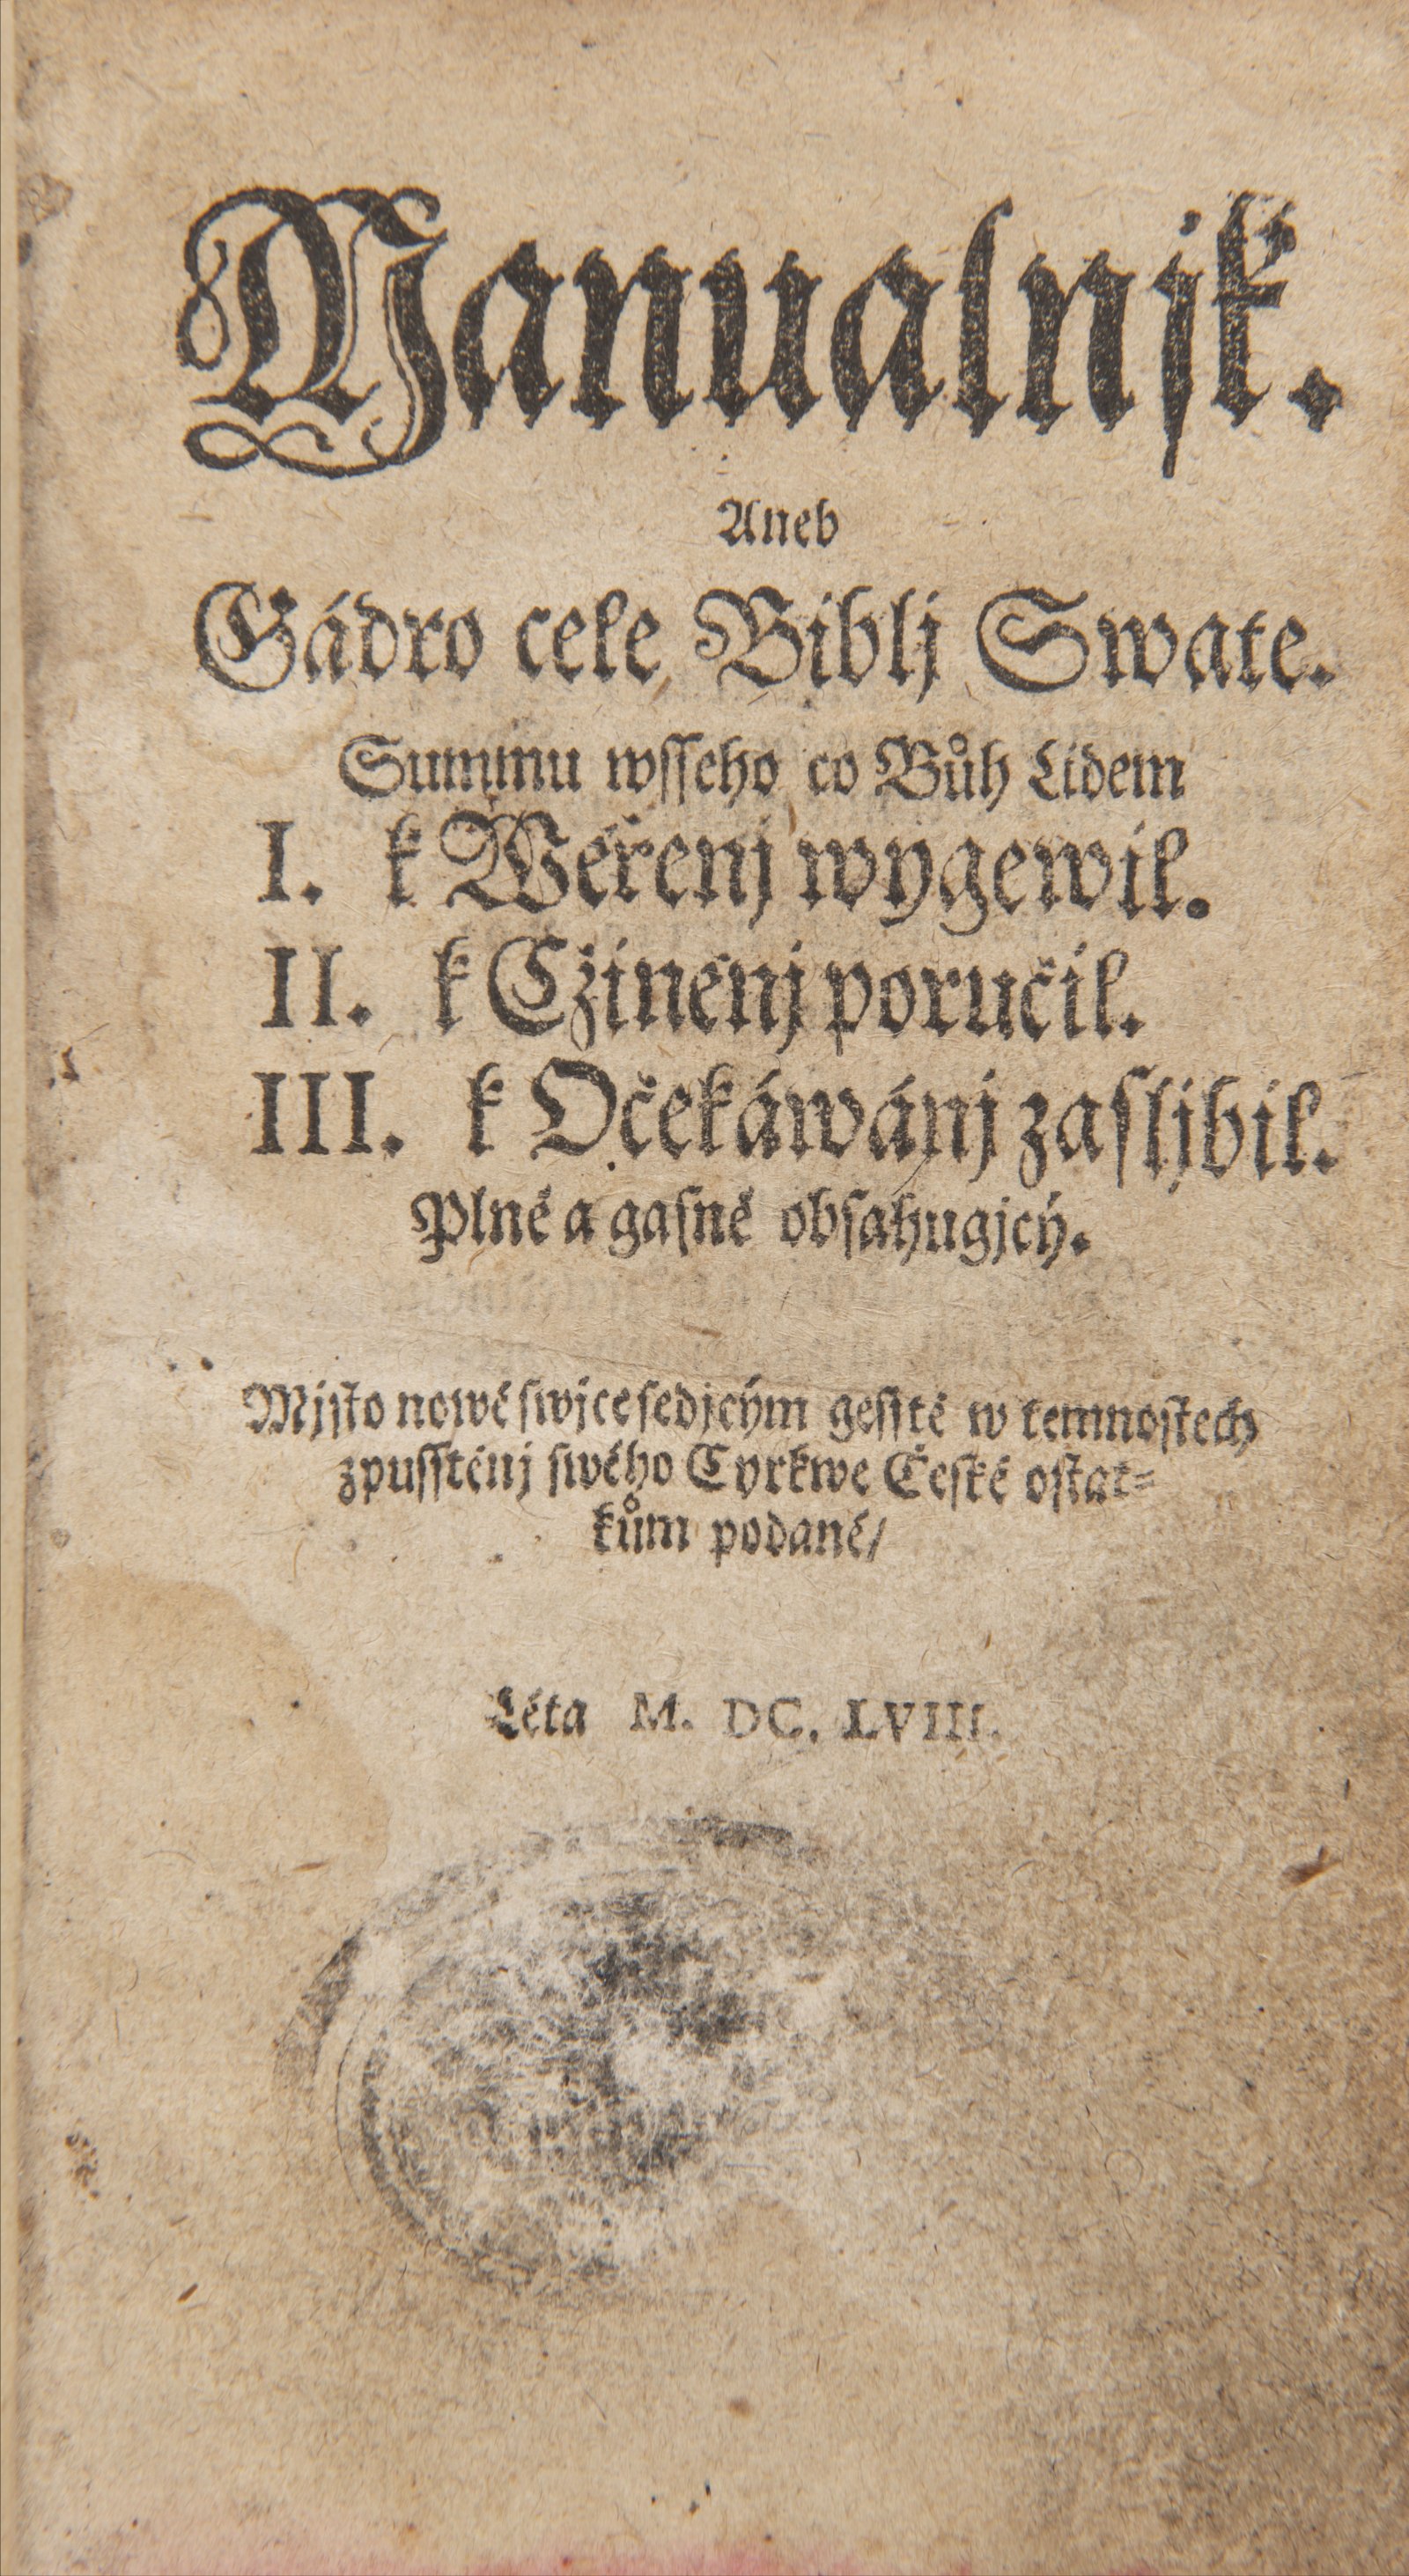 Manualnjk.
Aneb
Gádro cele Biblj Swate.
Summu wſſeho co Bůh Lidem
I. k Wěřenj wygewil.
II. k Cžiněnj poručil.
III. k Očekáwánj zaſljbil.
Plně a gaſně obſahugjcý.
Mjſto nowé ſwjce ſedjcým geſſtě w temnoſtech
zpuſſtěnj ſwého Cyrkwe Čeſké oſtat-
kům podané/
Léta M. DC. LVIII.